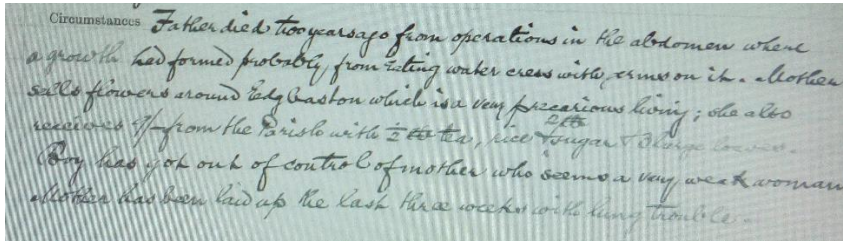 Circumstances Father died two years ago from operations in the abdomen where
a growth had formed probably from eating water cress with, erms on it. Mother
sells flowers around Edgbaston which is a very precarious living; she also
receives 9/- from the Parish with ½ lb tea, rice 2 lb sugar & 3 large loaves.
Boy has got out of control of mother who seems a very weak woman
Mother has been laid up the last three weeks with lung trouble.